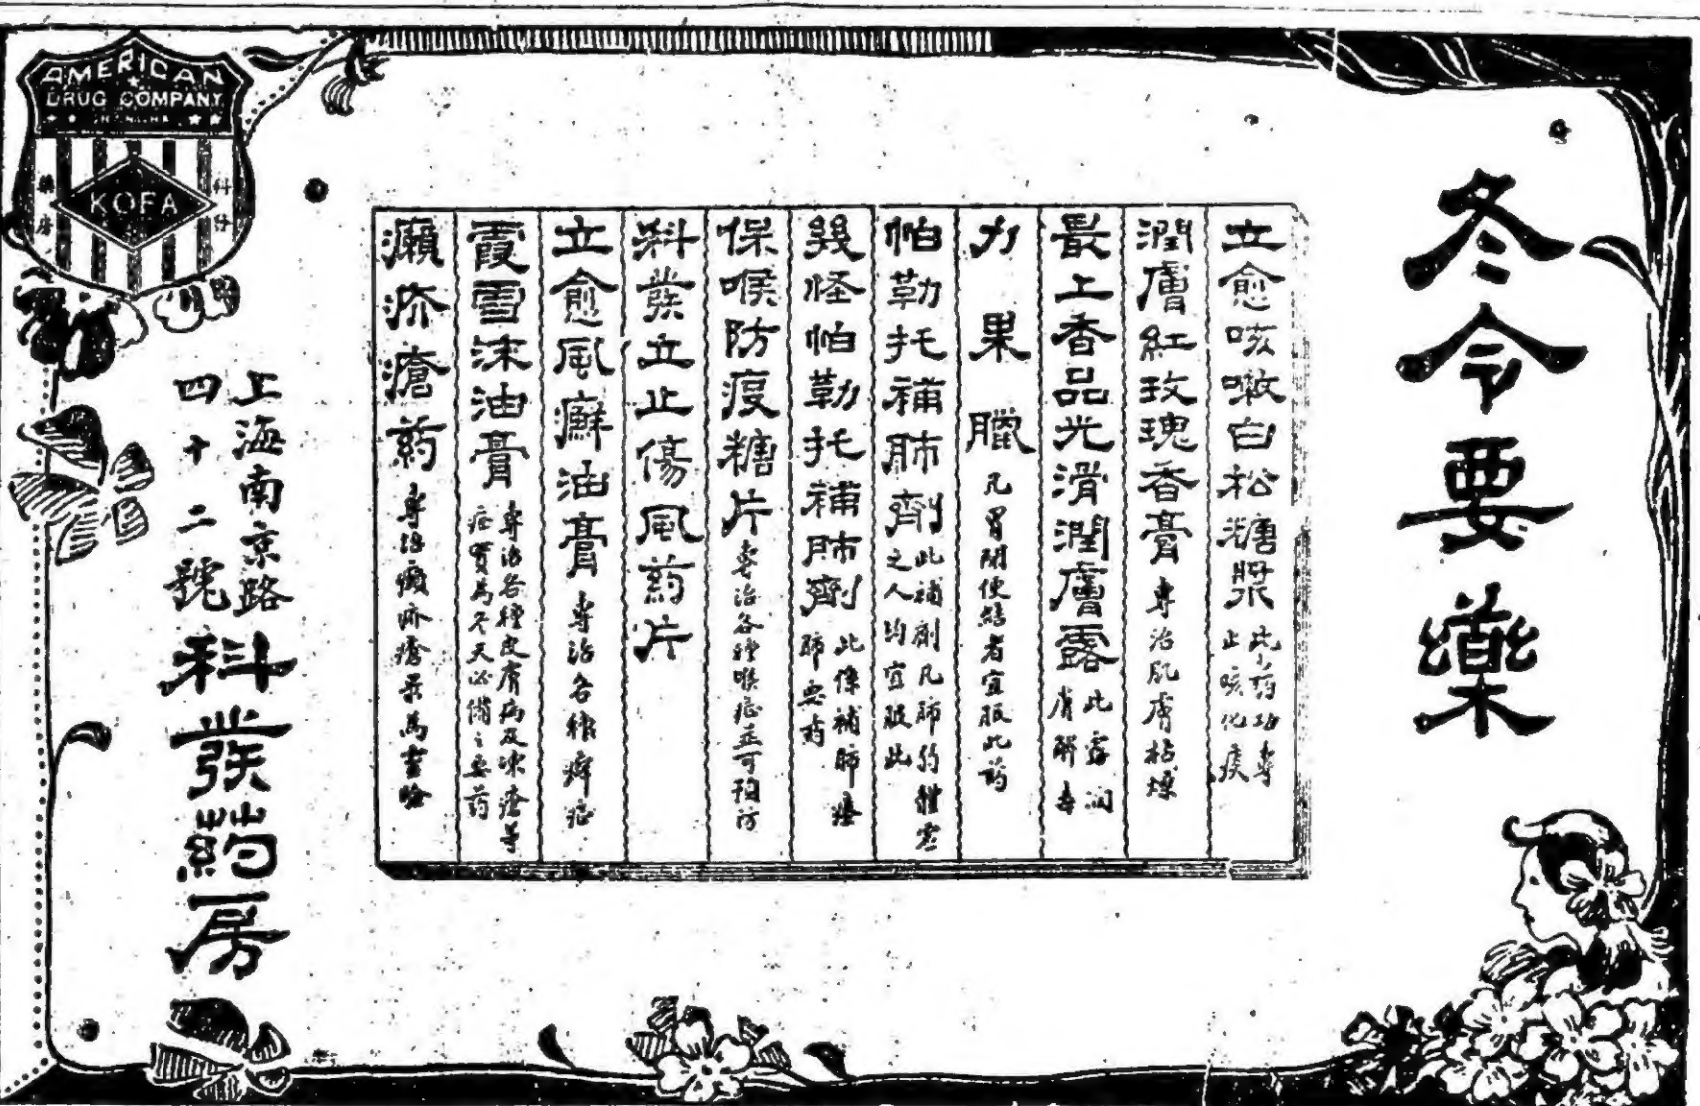 冬令要藥
立愈咳嗽白松糖漿 此药功專
止咳化痰
潤膚紅玫瑰香膏 專治肌膚枯燥
最上香品光滑潤膚露 此露潤
膚解毒
力果臘 凡胃閉便結者宜服此药
帕勒托補肺劑 此補劑凡肺弱體虛
之人均宜服此
幾怪帕勒托補肺劑 此係補肺癆
肺要药
保喉防疫糖片 專治各種喉症並可預防
科發立止傷風药片
立愈風癬油膏 專治各種癬症
霞雪沫油膏 專治各種皮膚病及凍瘡等
症實為冬天必備之要药
癩疥瘡药 專治癩疥瘡最為靈驗
上海南京路
四十二號
科發药房
AMERICAN
DRUG COMPANY
KOFA
科發
藥房